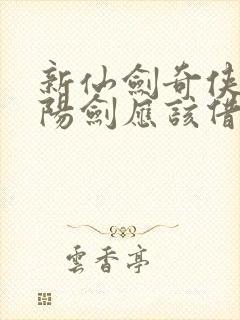 新仙劍奇俠
陽劍應該借
雲香亭